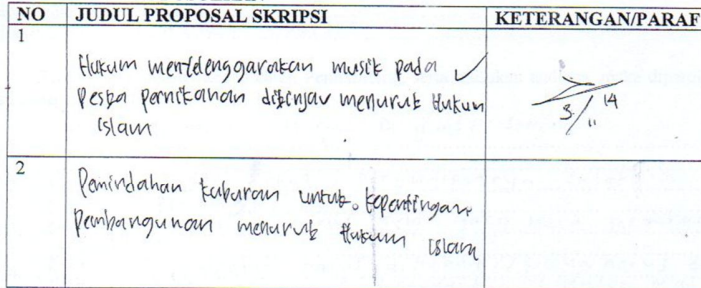 NO JUDUL PROPOSAL SKRIPSI KETERANGAN/PARAF
1
Hukum menyelenggarakan musik pada ✓
Pesta pernikahan ditinjau menurut Hukum
Islam
3/11 14
2
Pemindahan kuburan untuk kepentingan
Pembangunan menurut Hukum Islam